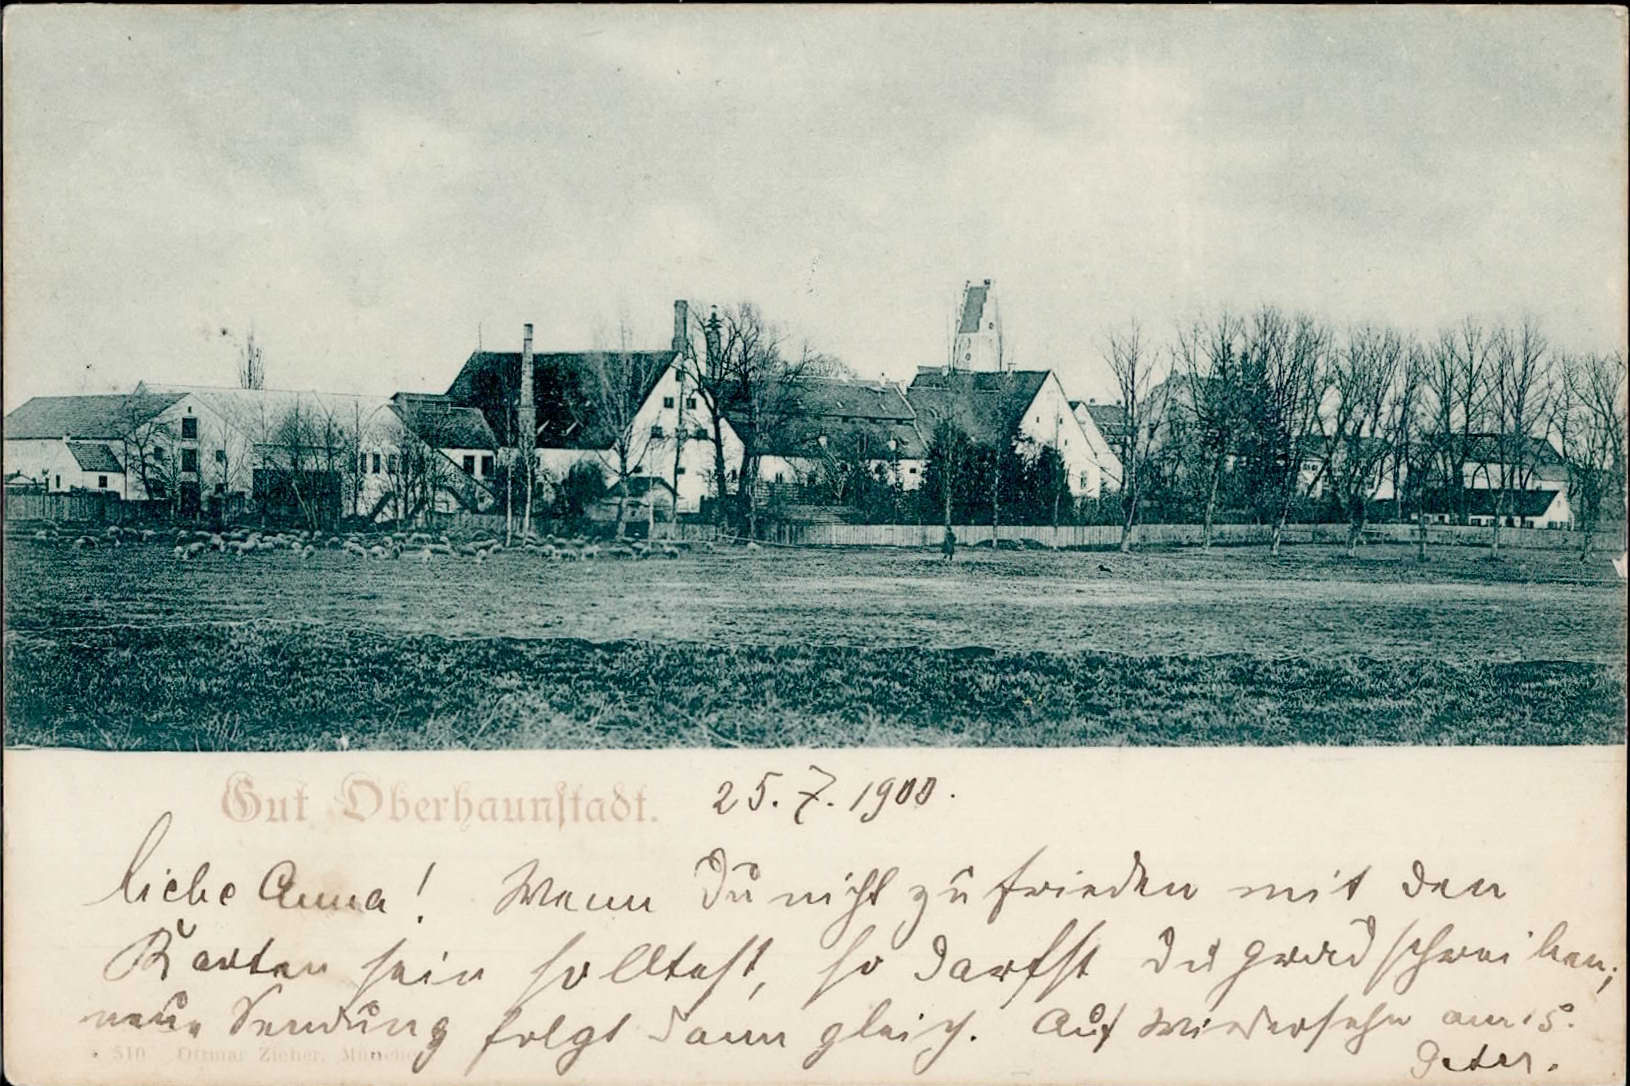 Gut Oberhaunstadt. 25. 7. 1900.
Liebe Anna! Wenn Du nicht zufrieden mit den
Karten sein solltest, so darfst Du grad schreiben;
neue Sendung folgt dann gleich. Auf Wiedersehn am 15.
510 Ottmar Zieher, München
Peter.